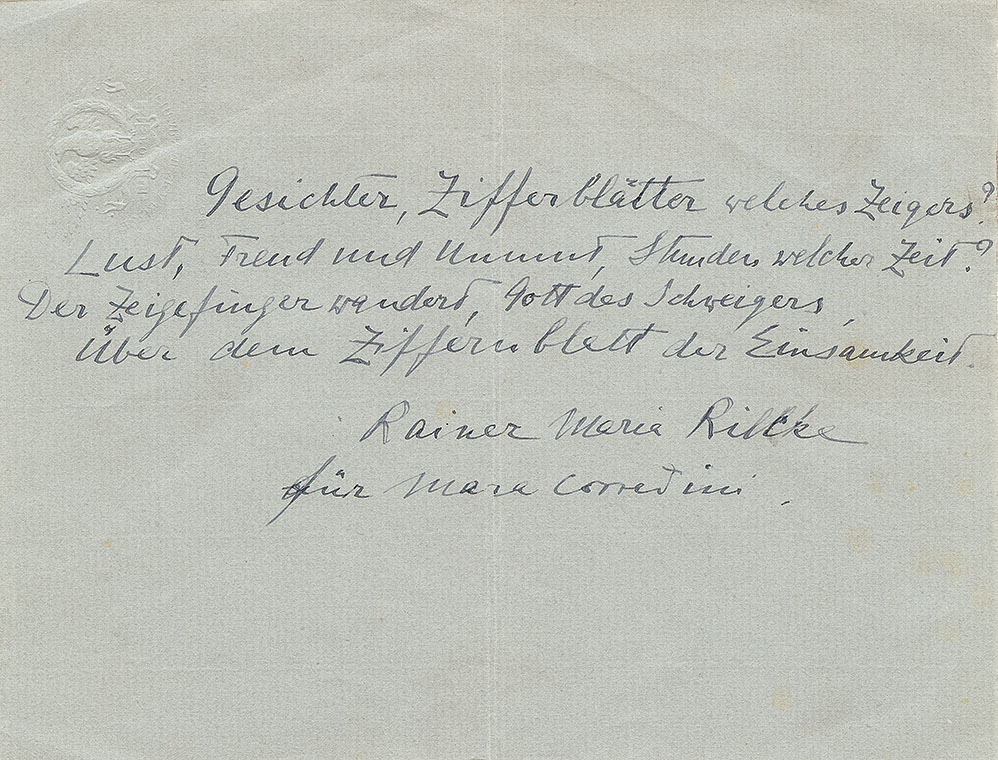 Gesichter, Zifferblätter welches Zeigers?
Lust, Freud und Unmut, Stunden welcher Zeit?
Der Zeigefinger wandert, Gott des Schweigers,
Über dem Ziffernblatt der Einsamkeit.
Rainer Maria Rilke
für Mara Corredini.